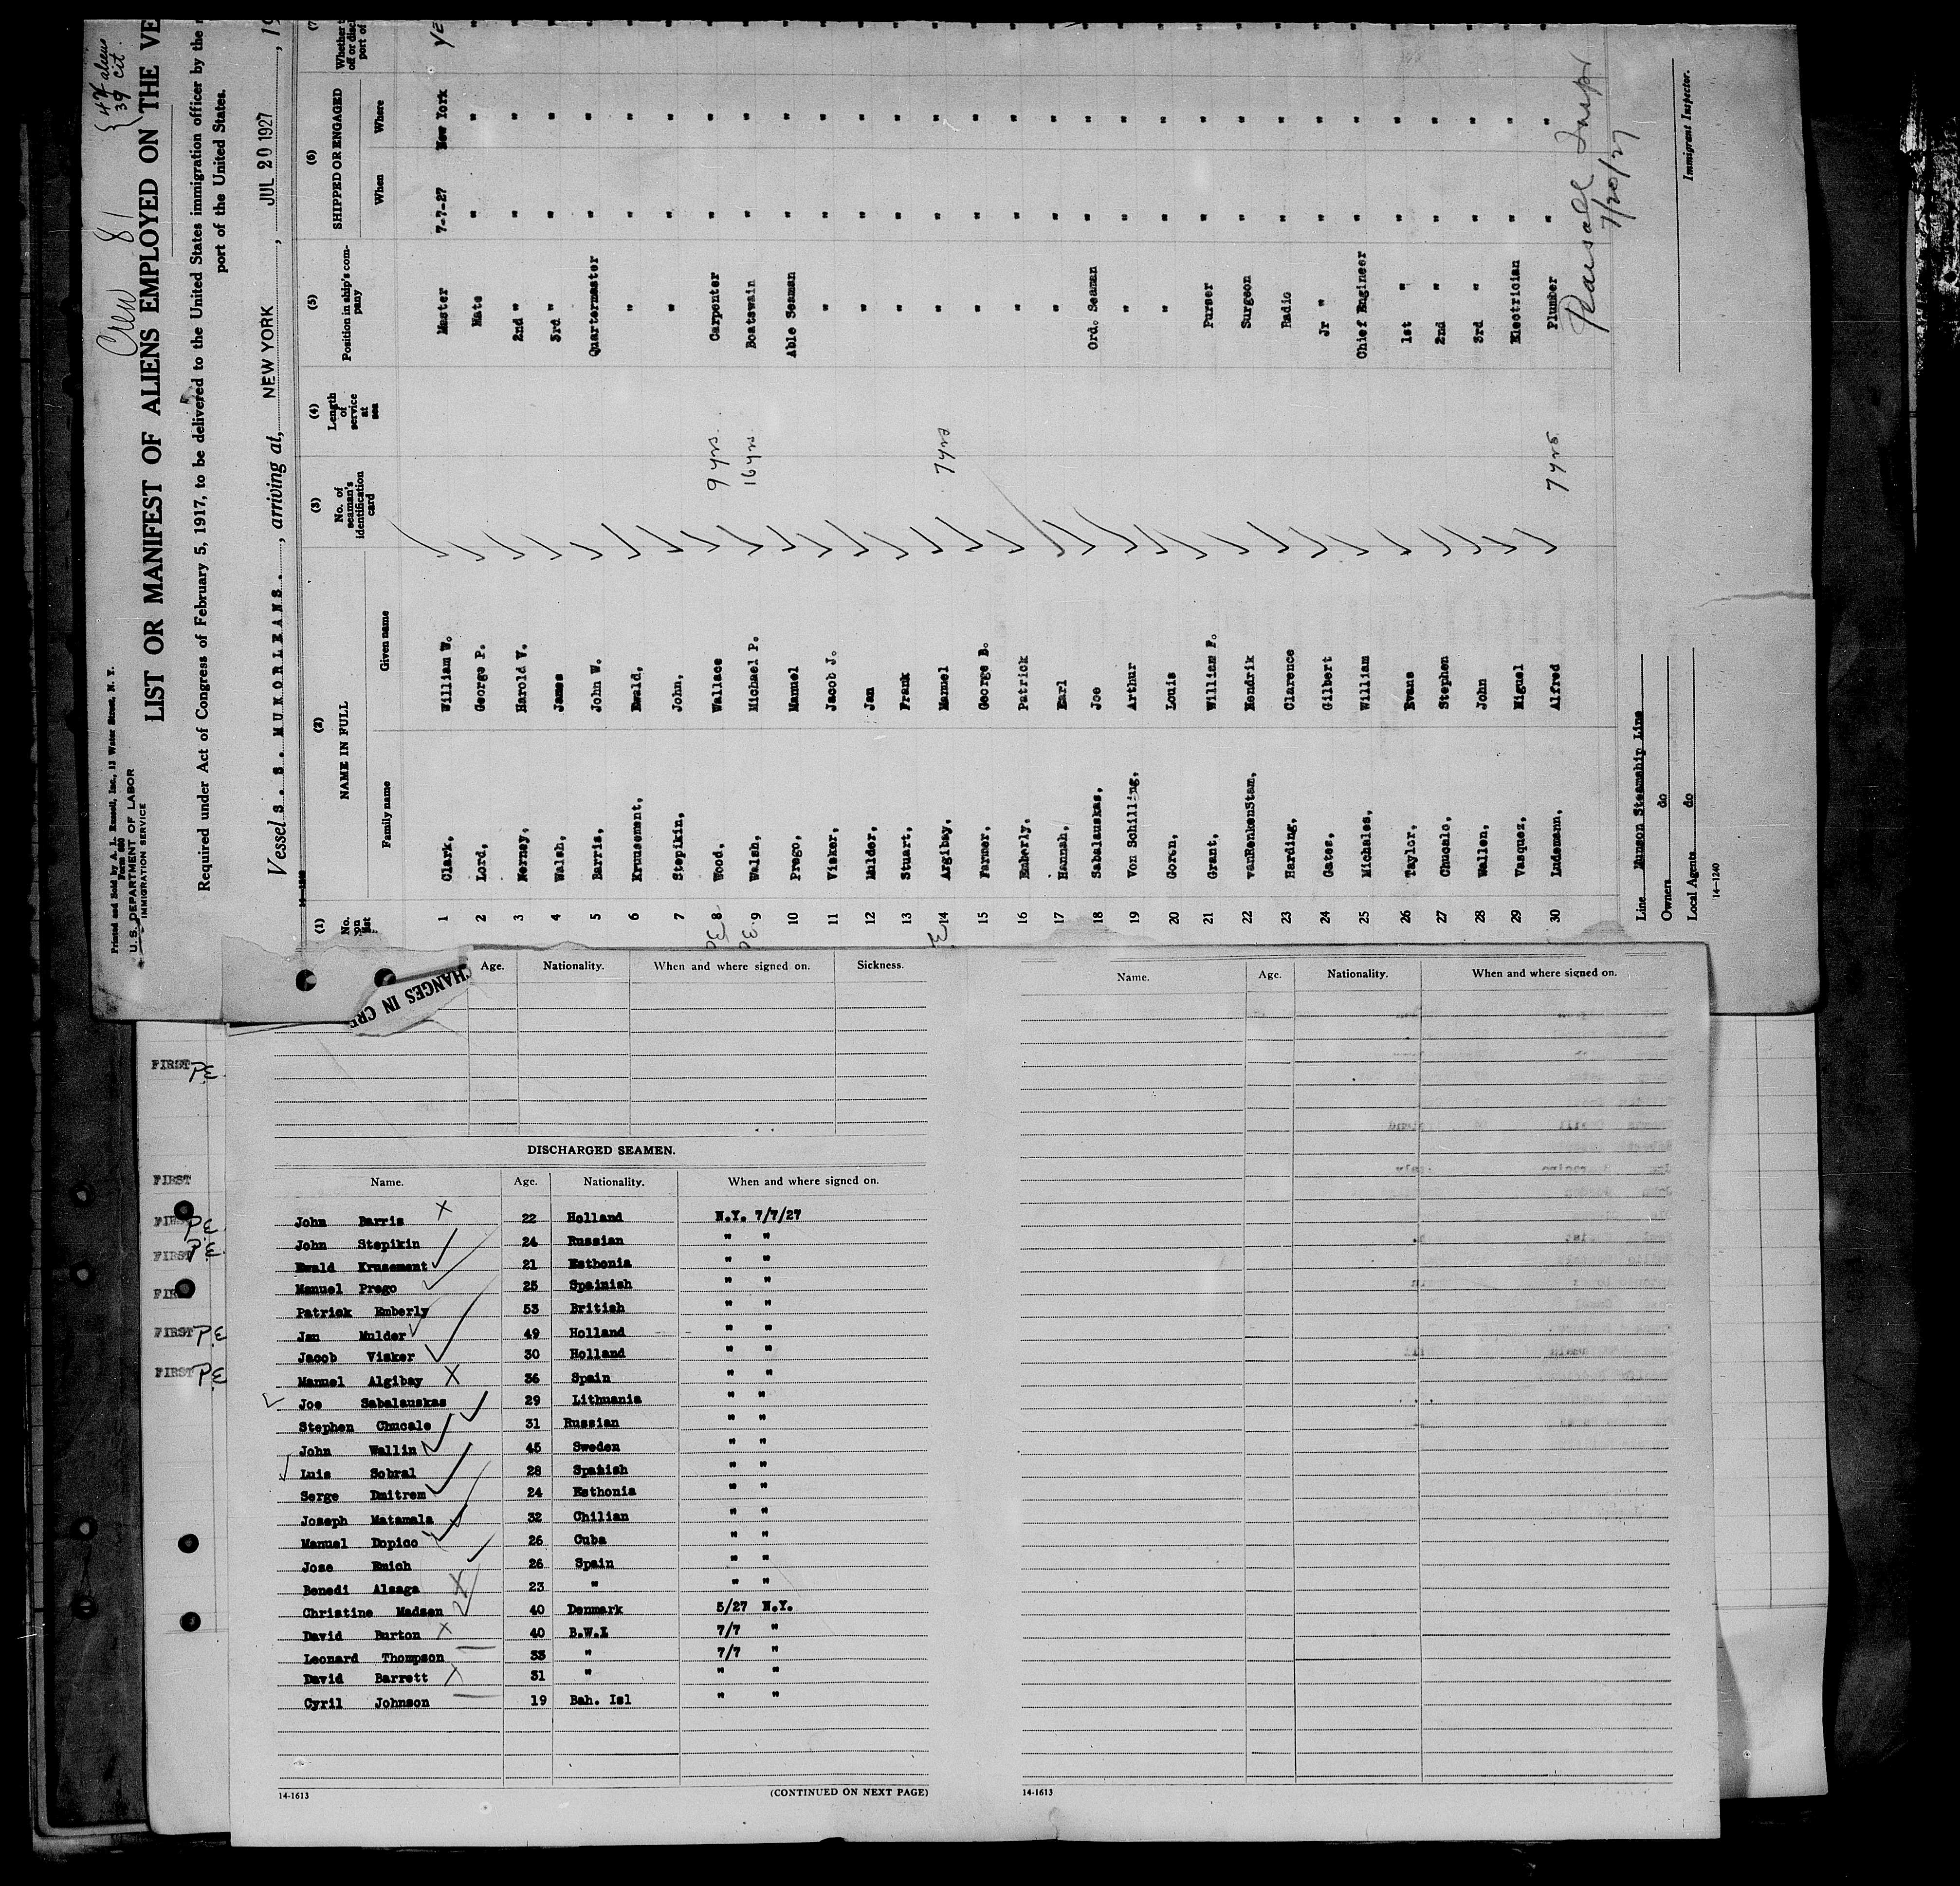 Printed and Sold by A. L. Russell, Inc., 13 Water Street, N. Y.
Form 680
U. S. DEPARTMENT OF LABOR
IMMIGRATION SERVICE
Crew 81
{ 42 aliens
39 cit.
LIST OR MANIFEST OF ALIENS EMPLOYED ON THE VE
Required under Act of Congress of February 5, 1917, to be delivered to the United States immigration officer by the
port of the United States.
Vessel S. S. MUNORLEANS., arriving at, NEW YORK, JUL 20 1927, 19
(1) No. on list (2) NAME IN FULL (3) No. of seaman's identification card (4) Length of service at sea (5) Position in ship's company (6) SHIPPED OR ENGAGED (7)
Family name Given name When Where
1 Clark, William W. Master 7-7-27 New York
2 Lord, George P. Mate " "
3 Nerney, Harold V. 2nd " " "
4 Walsh, James 3rd " " "
5 Barris, John W. Quartermaster " "
6 Krusement, Ewald, " " "
7 Stepikin, John, " " "
8 Wood, Wallace 9 yrs. Carpenter " "
9 Walsh, Michael P. 16 yrs. Boatswain " "
10 Prego, Manuel Able Seaman " "
11 Visker, Jacob J. " " "
12 Mulder, Jan " " "
13 Stuart, Frank " " "
14 Argibay, Manuel 7 yrs " " "
15 Farmer, George B. " " "
16 Emberly, Patrick " " "
17 Hannah, Earl " " "
18 Sabalauskas, Joe Ord. Seaman " "
19 Von Schilling, Arthur " " "
20 Goren, Louis " " "
21 Grant, William F. Purser " "
22 vanRenkenStam, Hendrik Surgeon " "
23 Harding, Clarence Radio " "
24 Gates, Gilbert Jr " " "
25 Michales, William Chief Engineer " "
26 Taylor, Evans 1st " " "
27 Chucalo, Stephen 2nd " " "
28 Wallen, John 3rd " " "
29 Vasquez, Miguel Electrician " "
30 Ludemann, Alfred 7 yrs Plumber " "
Insp
7/20/27
Line Munson Steamship Line
Owners do
Local Agents do
Immigrant Inspector.
14-1240
CHANGES IN CRE
Age. Nationality. When and where signed on. Sickness.
Name. Age. Nationality. When and where signed on.
FIRST P.E.
FIRST
FIRST P.E.
FIRST P.E.
FIRST
FIRST P.E.
FIRST P.E.
DISCHARGED SEAMEN.
Name. Age. Nationality. When and where signed on.
John Barris 22 Holland N.Y. 7/7/27
John Stepikin 24 Russian " "
Ewald Krusement 21 Esthonia " "
Manuel Prego 25 Spainish " "
Patrick Emberly 53 British " "
Jan Mulder 49 Holland " "
Jacob Visker 30 Holland " "
Manuel Algibay 36 Spain " "
Joe Sabalauskas 29 Lithuania " "
Stephen Chucale 31 Russian " "
John Wallin 45 Sweden " "
Luis Sobral 28 Spanish " "
Serge Dmitrem 24 Esthonia " "
Joseph Matamala 32 Chilian " "
Manuel Dopico 26 Cuba " "
Jose Emich 26 Spain " "
Benedi Alsaga 23 " " "
Christine Madsen 40 Denmark 5/27 N.Y.
David Burton 40 B.W.I 7/7 "
Leonard Thompson 33 " 7/7 "
David Barrett 31 " " "
Cyril Johnson 19 Bah. Isl " "
14-1613
(CONTINUED ON NEXT PAGE)
14-1613